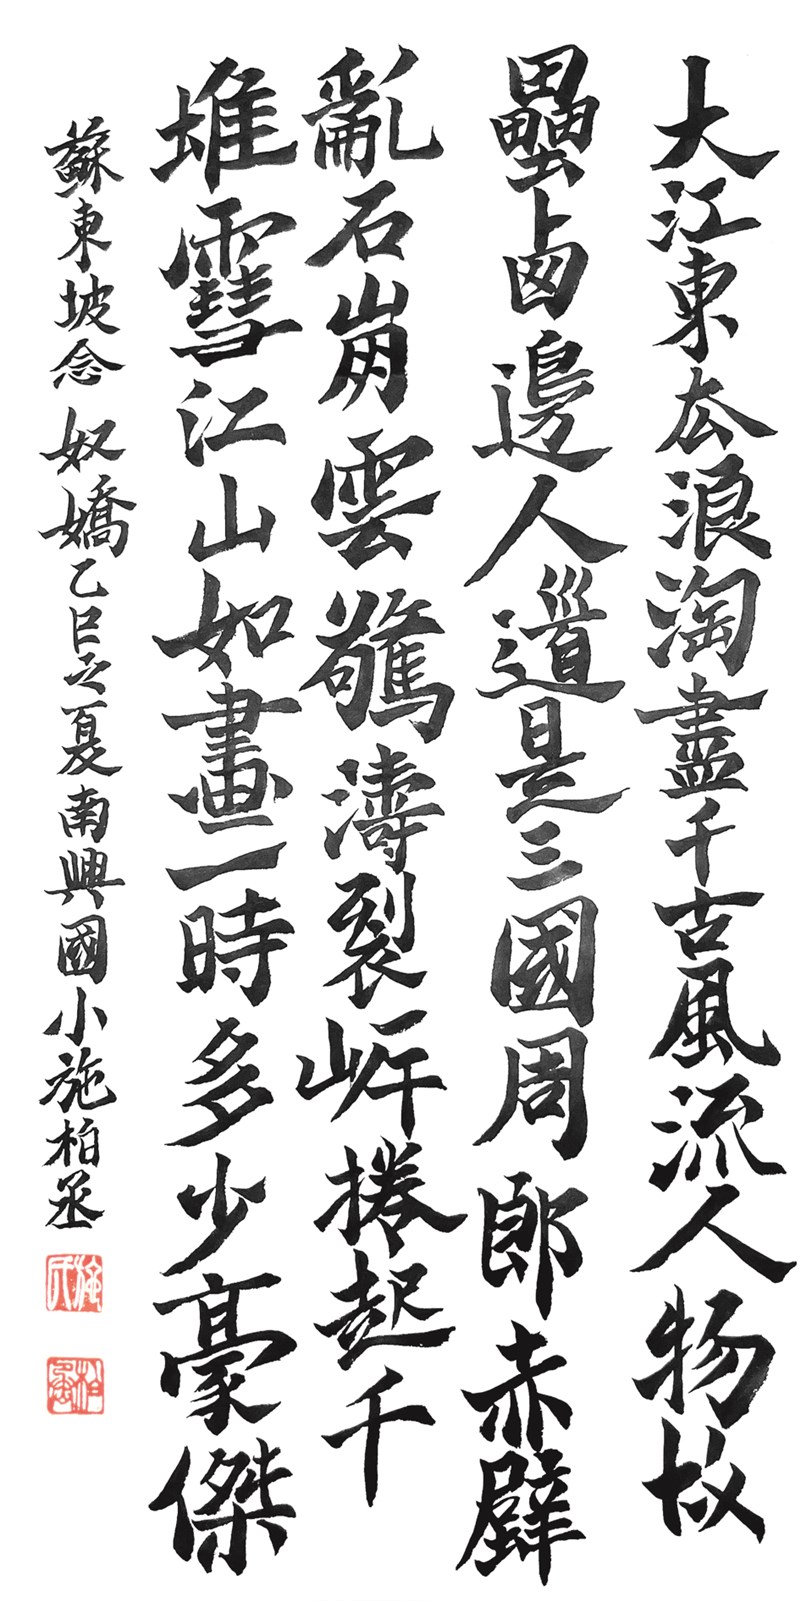 大江東去浪淘盡千古風流人物故
壘西邊人道是三國周郎赤壁
亂石崩雲驚濤裂岸捲起千
堆雪江山如畫一時多少豪傑
蘇東坡念奴嬌乙巳之夏南興國小施柏丞
施氏